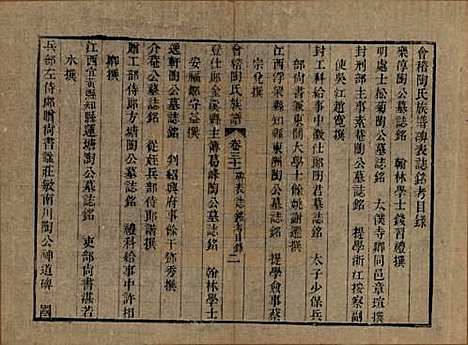 會稽陶氏族譜碑表誌銘考目錄
樂淳陶公墓誌銘 翰林學士錢習禮撰
明處士松菊陶公墓誌銘 太僕寺卿同邑章瑄撰
封刑部主事素菴陶公墓誌銘 提學浙江按察副
使吳江趙寬撰
封工科給事中徵仕郎陶君墓誌銘 太子少保兵
部尚書兼東閣大學士餘姚謝遷撰
江西浮梁縣知縣東洲陶公墓誌銘 提學僉事蔡
宗兗撰
會稽陶氏族譜 卷三十一 碑表誌銘考目錄 一
登仕郎金谿縣主簿葛峰陶公墓誌銘 翰林學士
安福鄒守益撰
運軒陶公墓誌銘 判紹興府事餘干鄧秀撰
介菴陶公墓誌銘 從姪兵部侍郎諧撰
贈工部侍郎方塘陶公墓誌銘 禮科給事中許相
卿撰
江西宜黃縣知縣蓮塘陶公墓誌銘 吏部尚書湛若
水撰
兵部左侍郎贈尚書諡莊敏南川陶公神道碑 國